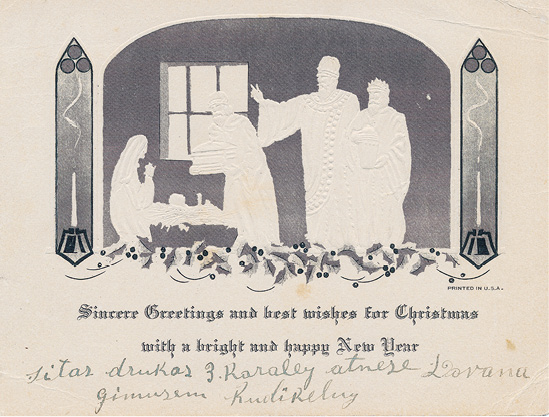 PRINTED IN U.S.A.
Sincere Greetings and best wishes for Christmas
with a bright and happy New Year
sitas drukas 3. Karaley atnese Dovana
gimusem Kudikeluy